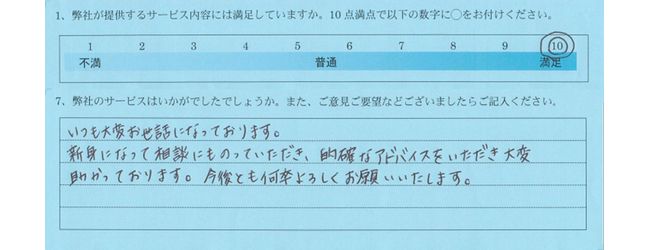 1、弊社が提供するサービス内容には満足していますか。10点満点で以下の数字に○をお付けください。
1 2 3 4 5 6 7 8 9 10
不満 普通 満足
7、弊社のサービスはいかがでしたでしょうか。また、ご意見ご要望などございましたらご記入ください。
いつも大変お世話になっております。
新身になって相談にものっていただき、的確なアドバイスをいただき大変
助かっております。今後とも何卒よろしくお願いいたします。